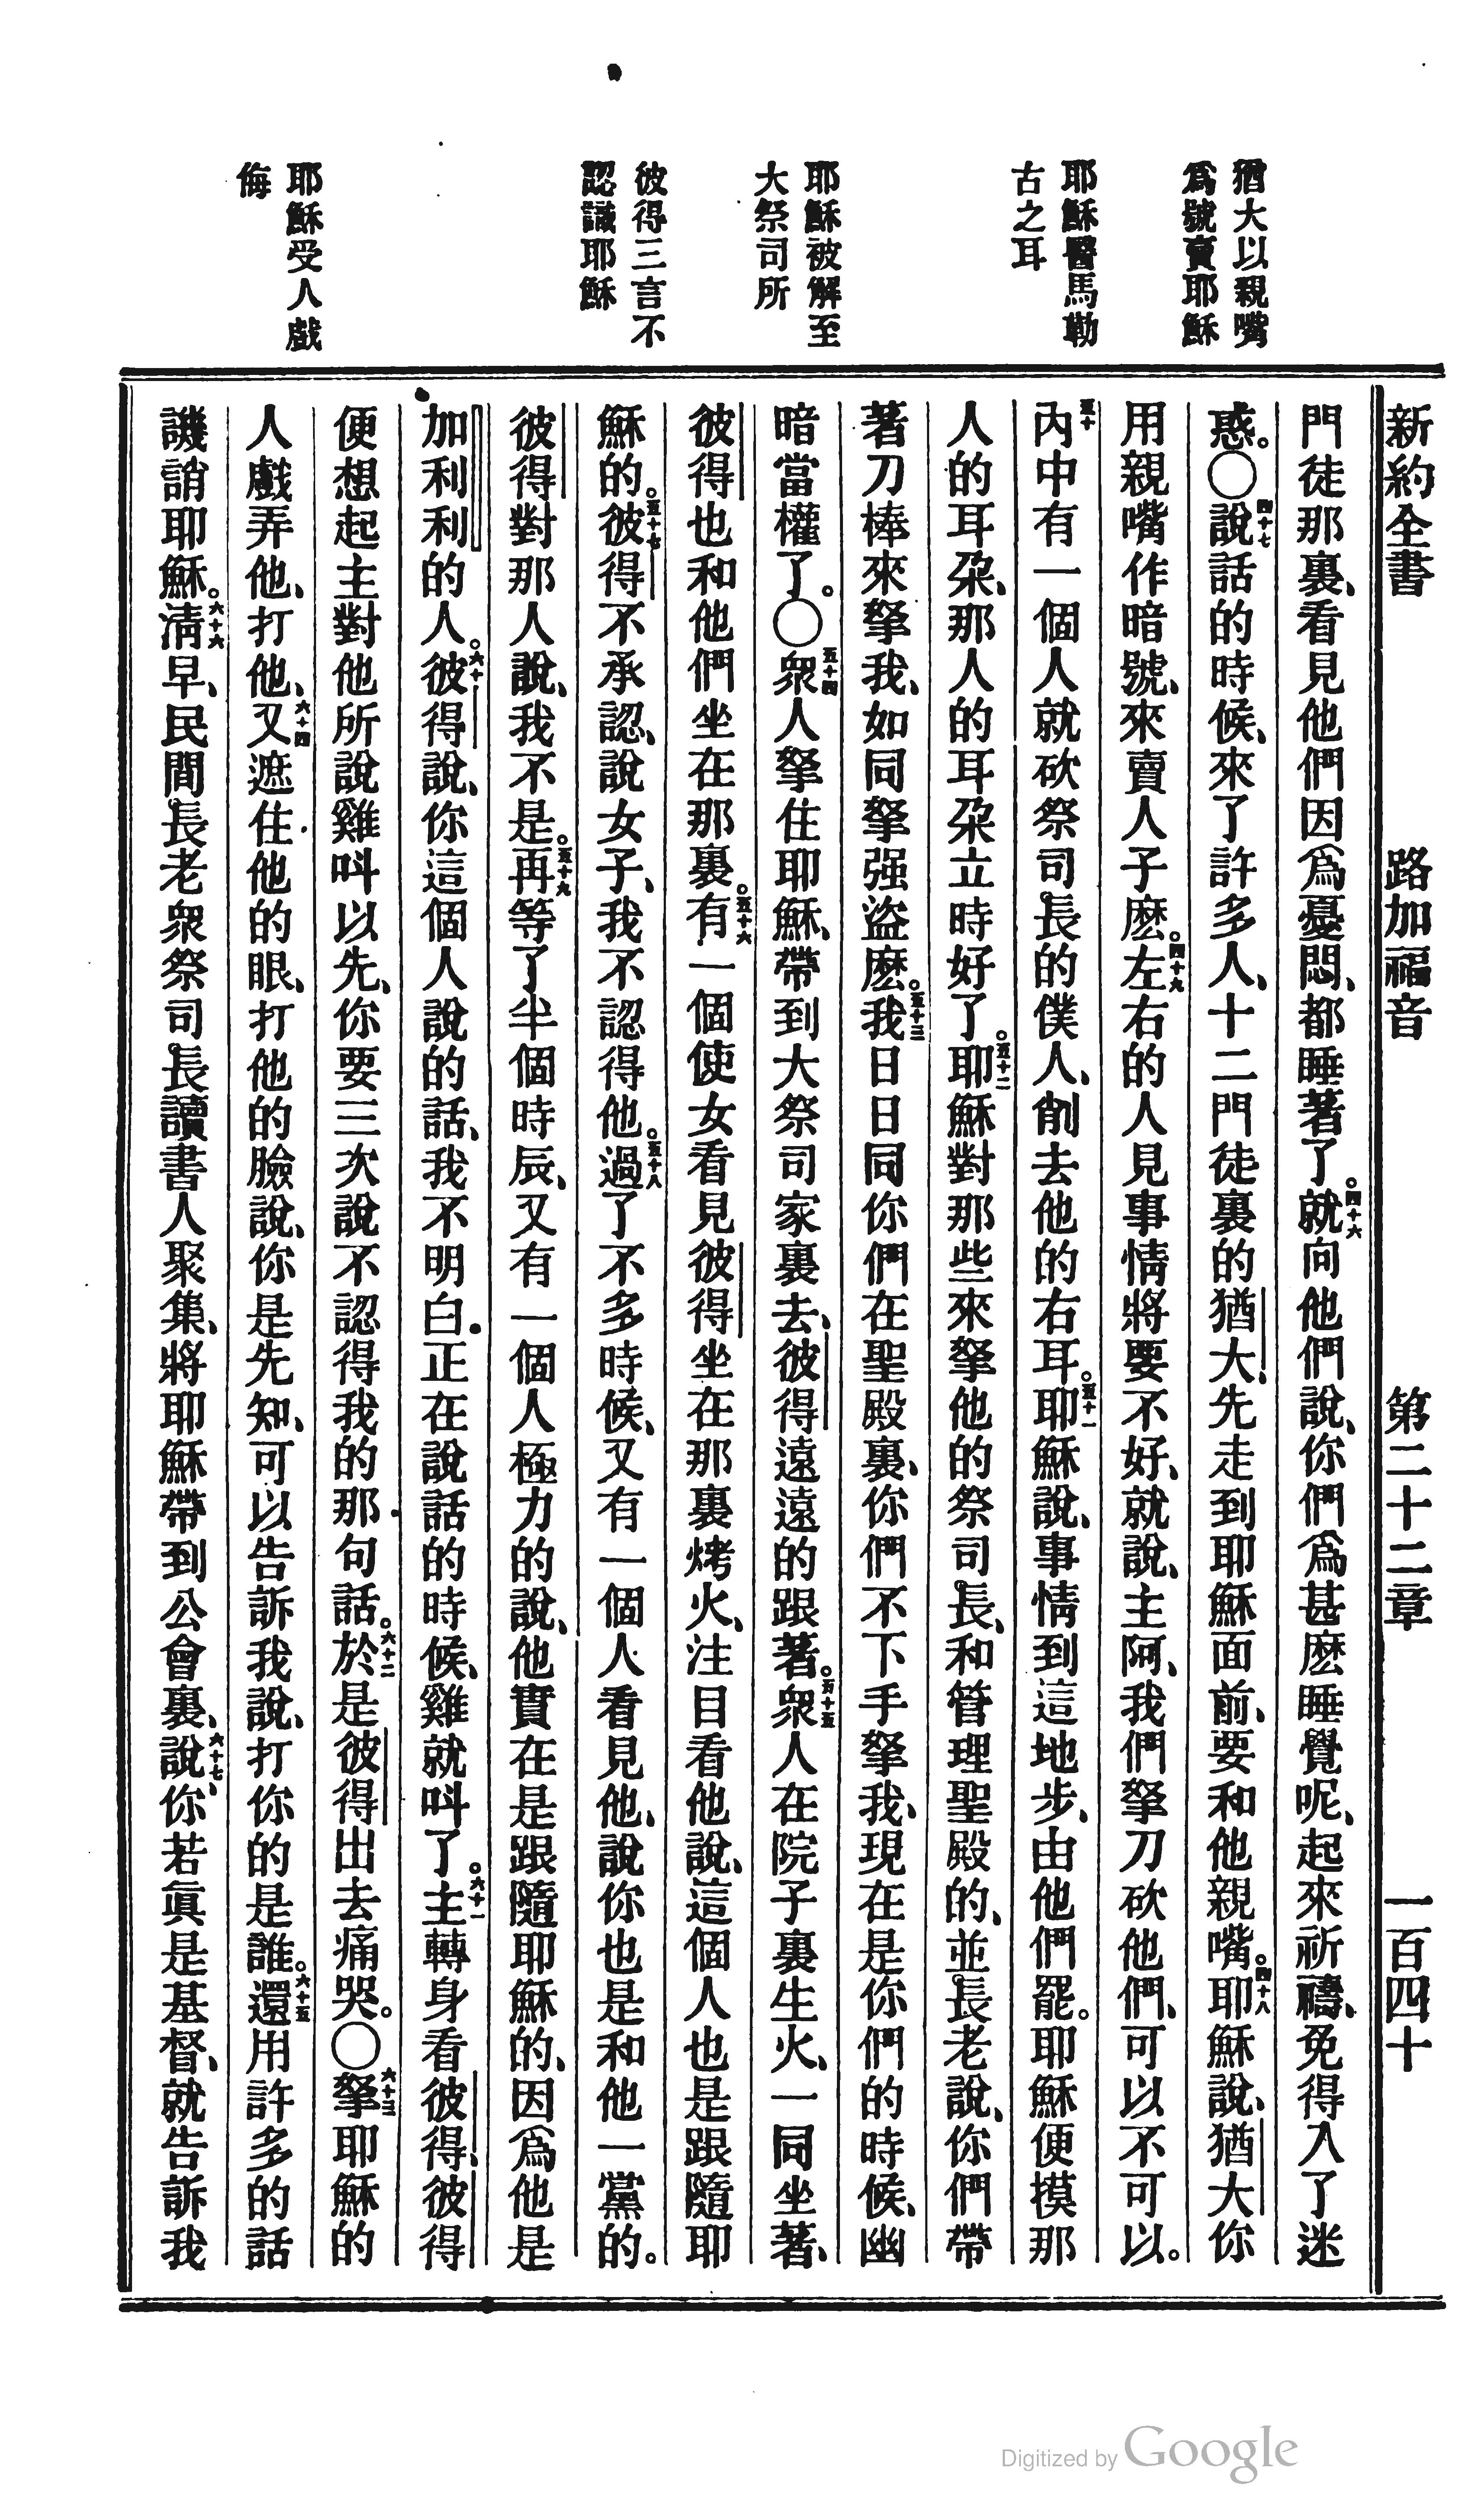 新約全書 路加福音 第二十二章 一百四十
猶大以親嘴
爲號賣耶穌
耶穌醫馬勒
古之耳
耶穌被解至
大祭司所
彼得三言不
認識耶穌
耶穌受人戲
侮
門徒那裏、看見他們因爲憂悶、都睡著了。四十六就向他們說、你們爲甚麽睡覺呢、起來祈禱、免得入了迷
惑。○四十七說話的時候、來了許多人、十二門徒裏的猶大、先走到耶穌面前、要和他親嘴。四十八耶穌說、猶大你
用親嘴作暗號、來賣人子麽。四十九左右的人見事情將要不好、就說、主阿、我們拏刀砍他們、可以不可以。
五十內中有一個人就砍祭司長的僕人、削去他的右耳。五十一耶穌說、事情到這地步、由他們罷。耶穌便摸那
人的耳朶、那人的耳朶立時好了。五十二耶穌對那些來拏他的祭司長、和管理聖殿的、並長老說、你們帶
著刀棒來拏我、如同拏强盜麽。五十三我日日同你們在聖殿裏、你們不下手拏我、現在是你們的時候、幽
暗當權了。○五十四衆人拏住耶穌、帶到大祭司家裏去、彼得遠遠的跟著。五十五衆人在院子裏生火、一同坐著、
彼得也和他們坐在那裏。五十六有一個使女看見彼得坐在那裏烤火、注目看他說、這個人也是跟隨耶
穌的。五十七彼得不承認、說女子、我不認得他。五十八過了不多時候、又有一個人看見他、說你也是和他一黨的。
彼得對那人說、我不是。五十九再等了半個時辰、又有一個人極力的說、他實在是跟隨耶穌的、因爲他是
加利利的人。六十彼得說、你這個人說的話、我不明白.正在說話的時候、雞就呌了。六十一主轉身看彼得、彼得
便想起主對他所說雞呌以先、你要三次說不認得我的那句話。六十二於是彼得出去痛哭。○六十三拏耶穌的
人戲弄他、打他、六十四又遮住他的眼、打他的臉說、你是先知、可以告訴我說、打你的是誰。六十五還用許多的話
譏誚耶穌。六十六淸早、民間長老衆祭司長讀書人聚集、將耶穌帶到公會裏、六十七說、你若眞是基督、就告訴我
Digitized by Google